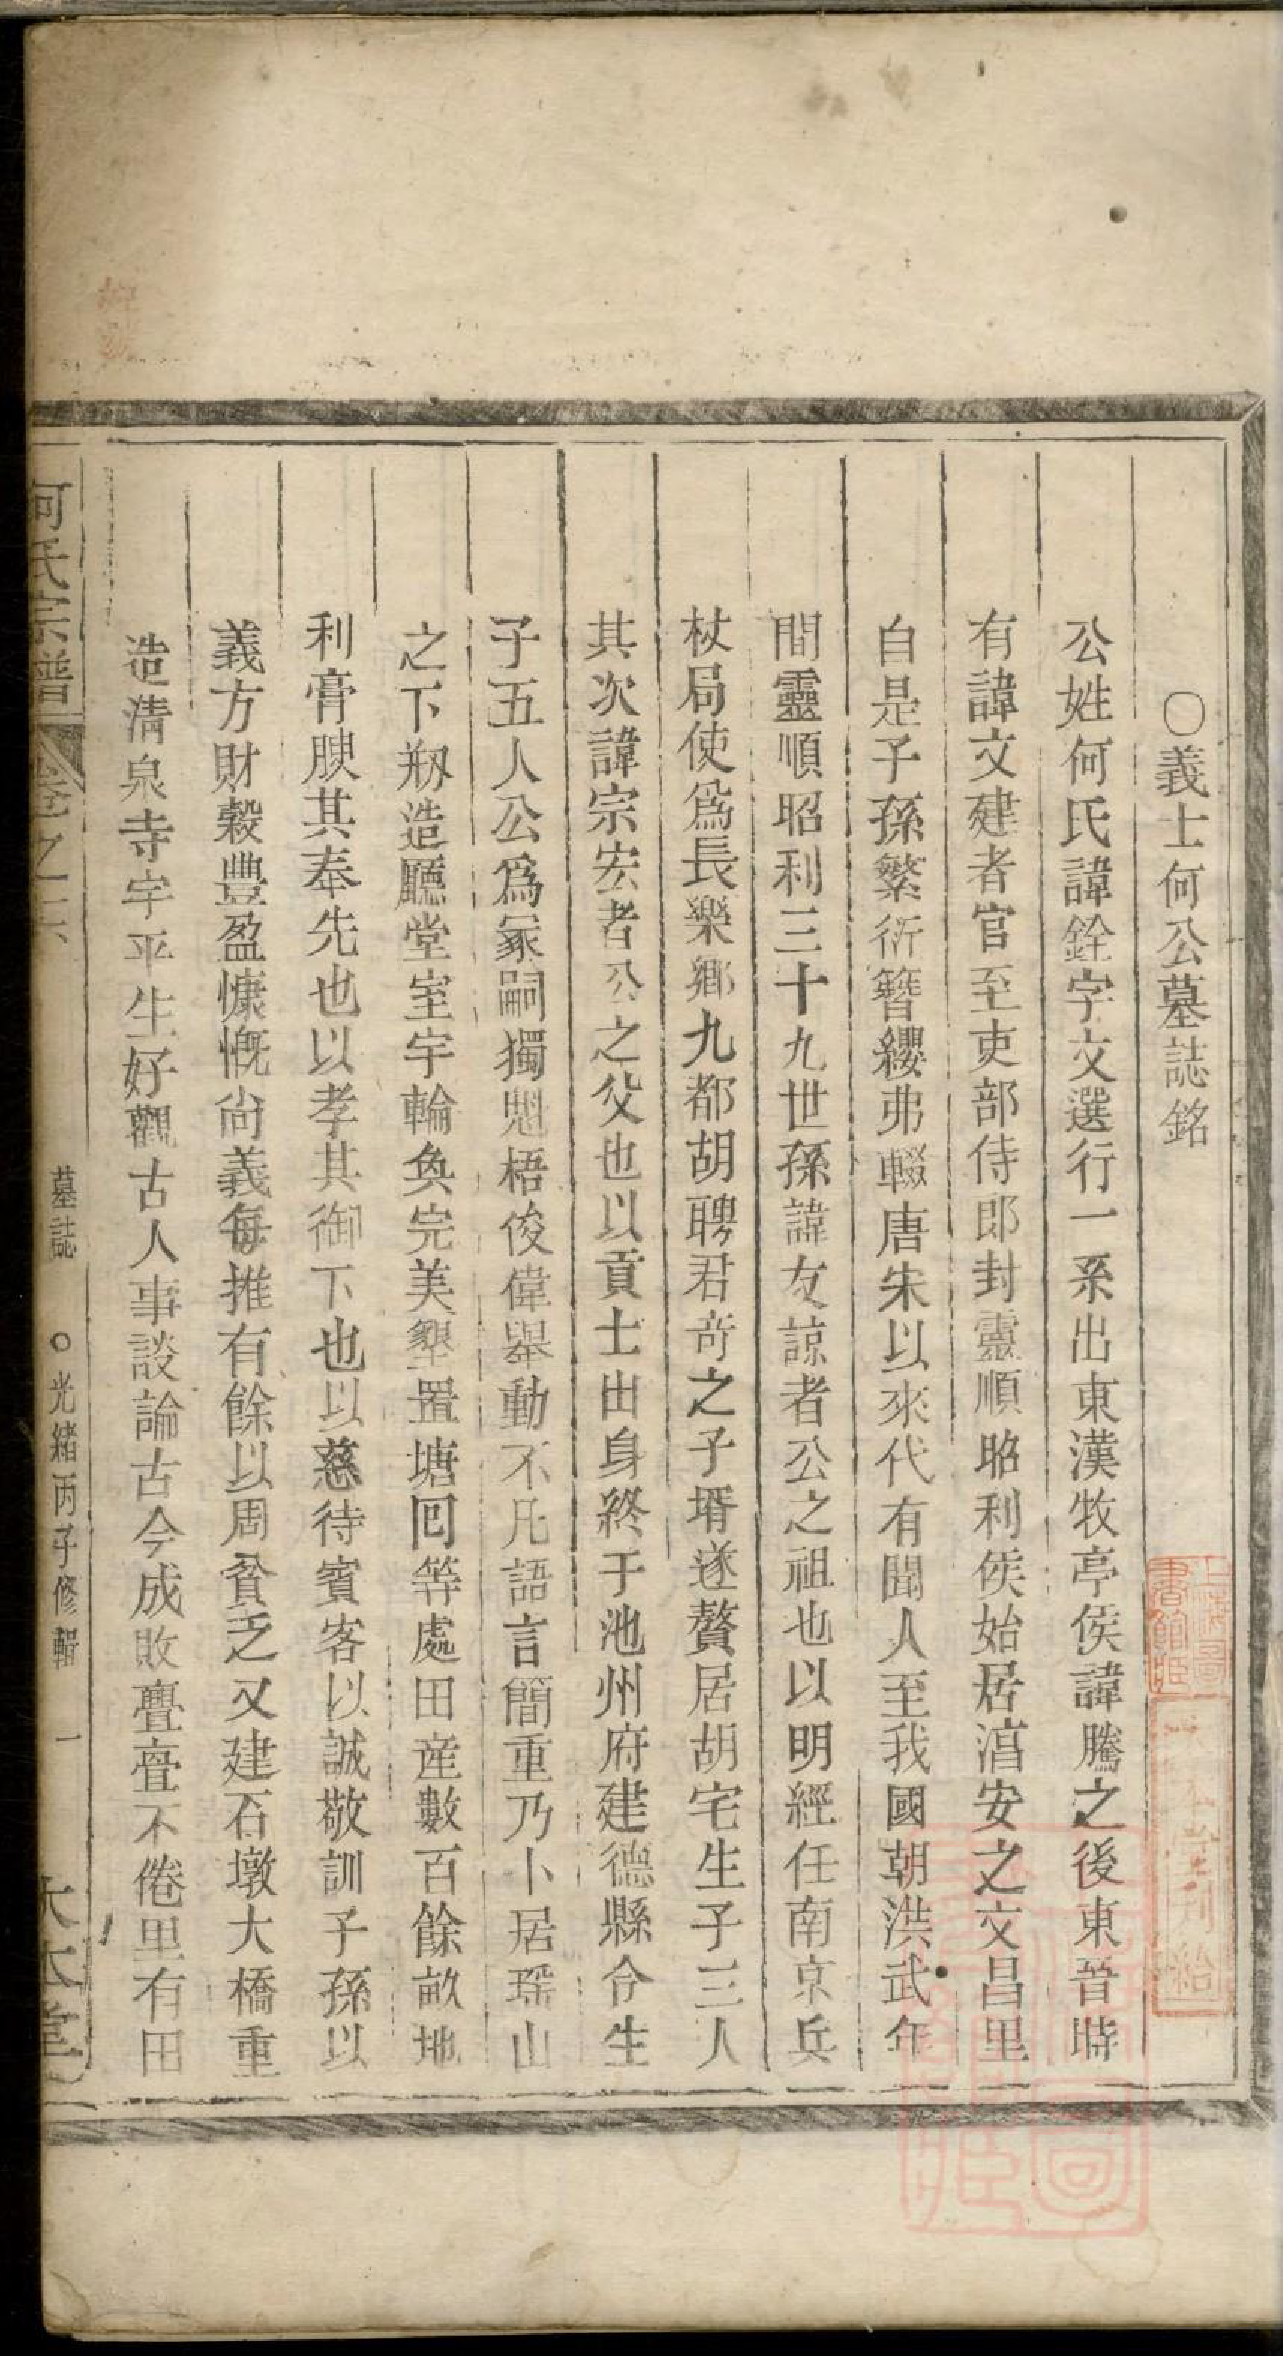 〇義士何公墓誌銘
公姓何氏諱銓字文選行一系出東漢牧亭侯諱騰之後東晉時
有諱文建者官至吏部侍郎封靈順昭利侯始居湻安之文昌里
自是子孫繁衍簪纓弗輟唐宋以來代有聞人至我國朝洪武年
間靈順昭利三十九世孫諱友諒者公之祖也以明經任南京兵
杖局使爲長樂鄉九都胡聘君奇之子壻遂贅居胡宅生子三人
其次諱宗宏者公之父也以貢士出身終于池州府建德縣令生
子五人公爲冢嗣獨魁梧俊偉舉動不凡語言簡重乃卜居瑶山
之下剏造廳堂室宇輪奐完美墾置塘囘等處田產數百餘畝地
利膏腴其奉先也以孝其御下也以慈待賓客以誠敬訓子孫以
義方財穀豐盈慷慨尚義每推有餘以周貧乏又建石墩大橋重
造清泉寺宇平生好觀古人事談論古今成敗亹亹不倦里有田
何氏宗譜
卷之六
墓誌
〇光緒丙子修輯
一
大本堂